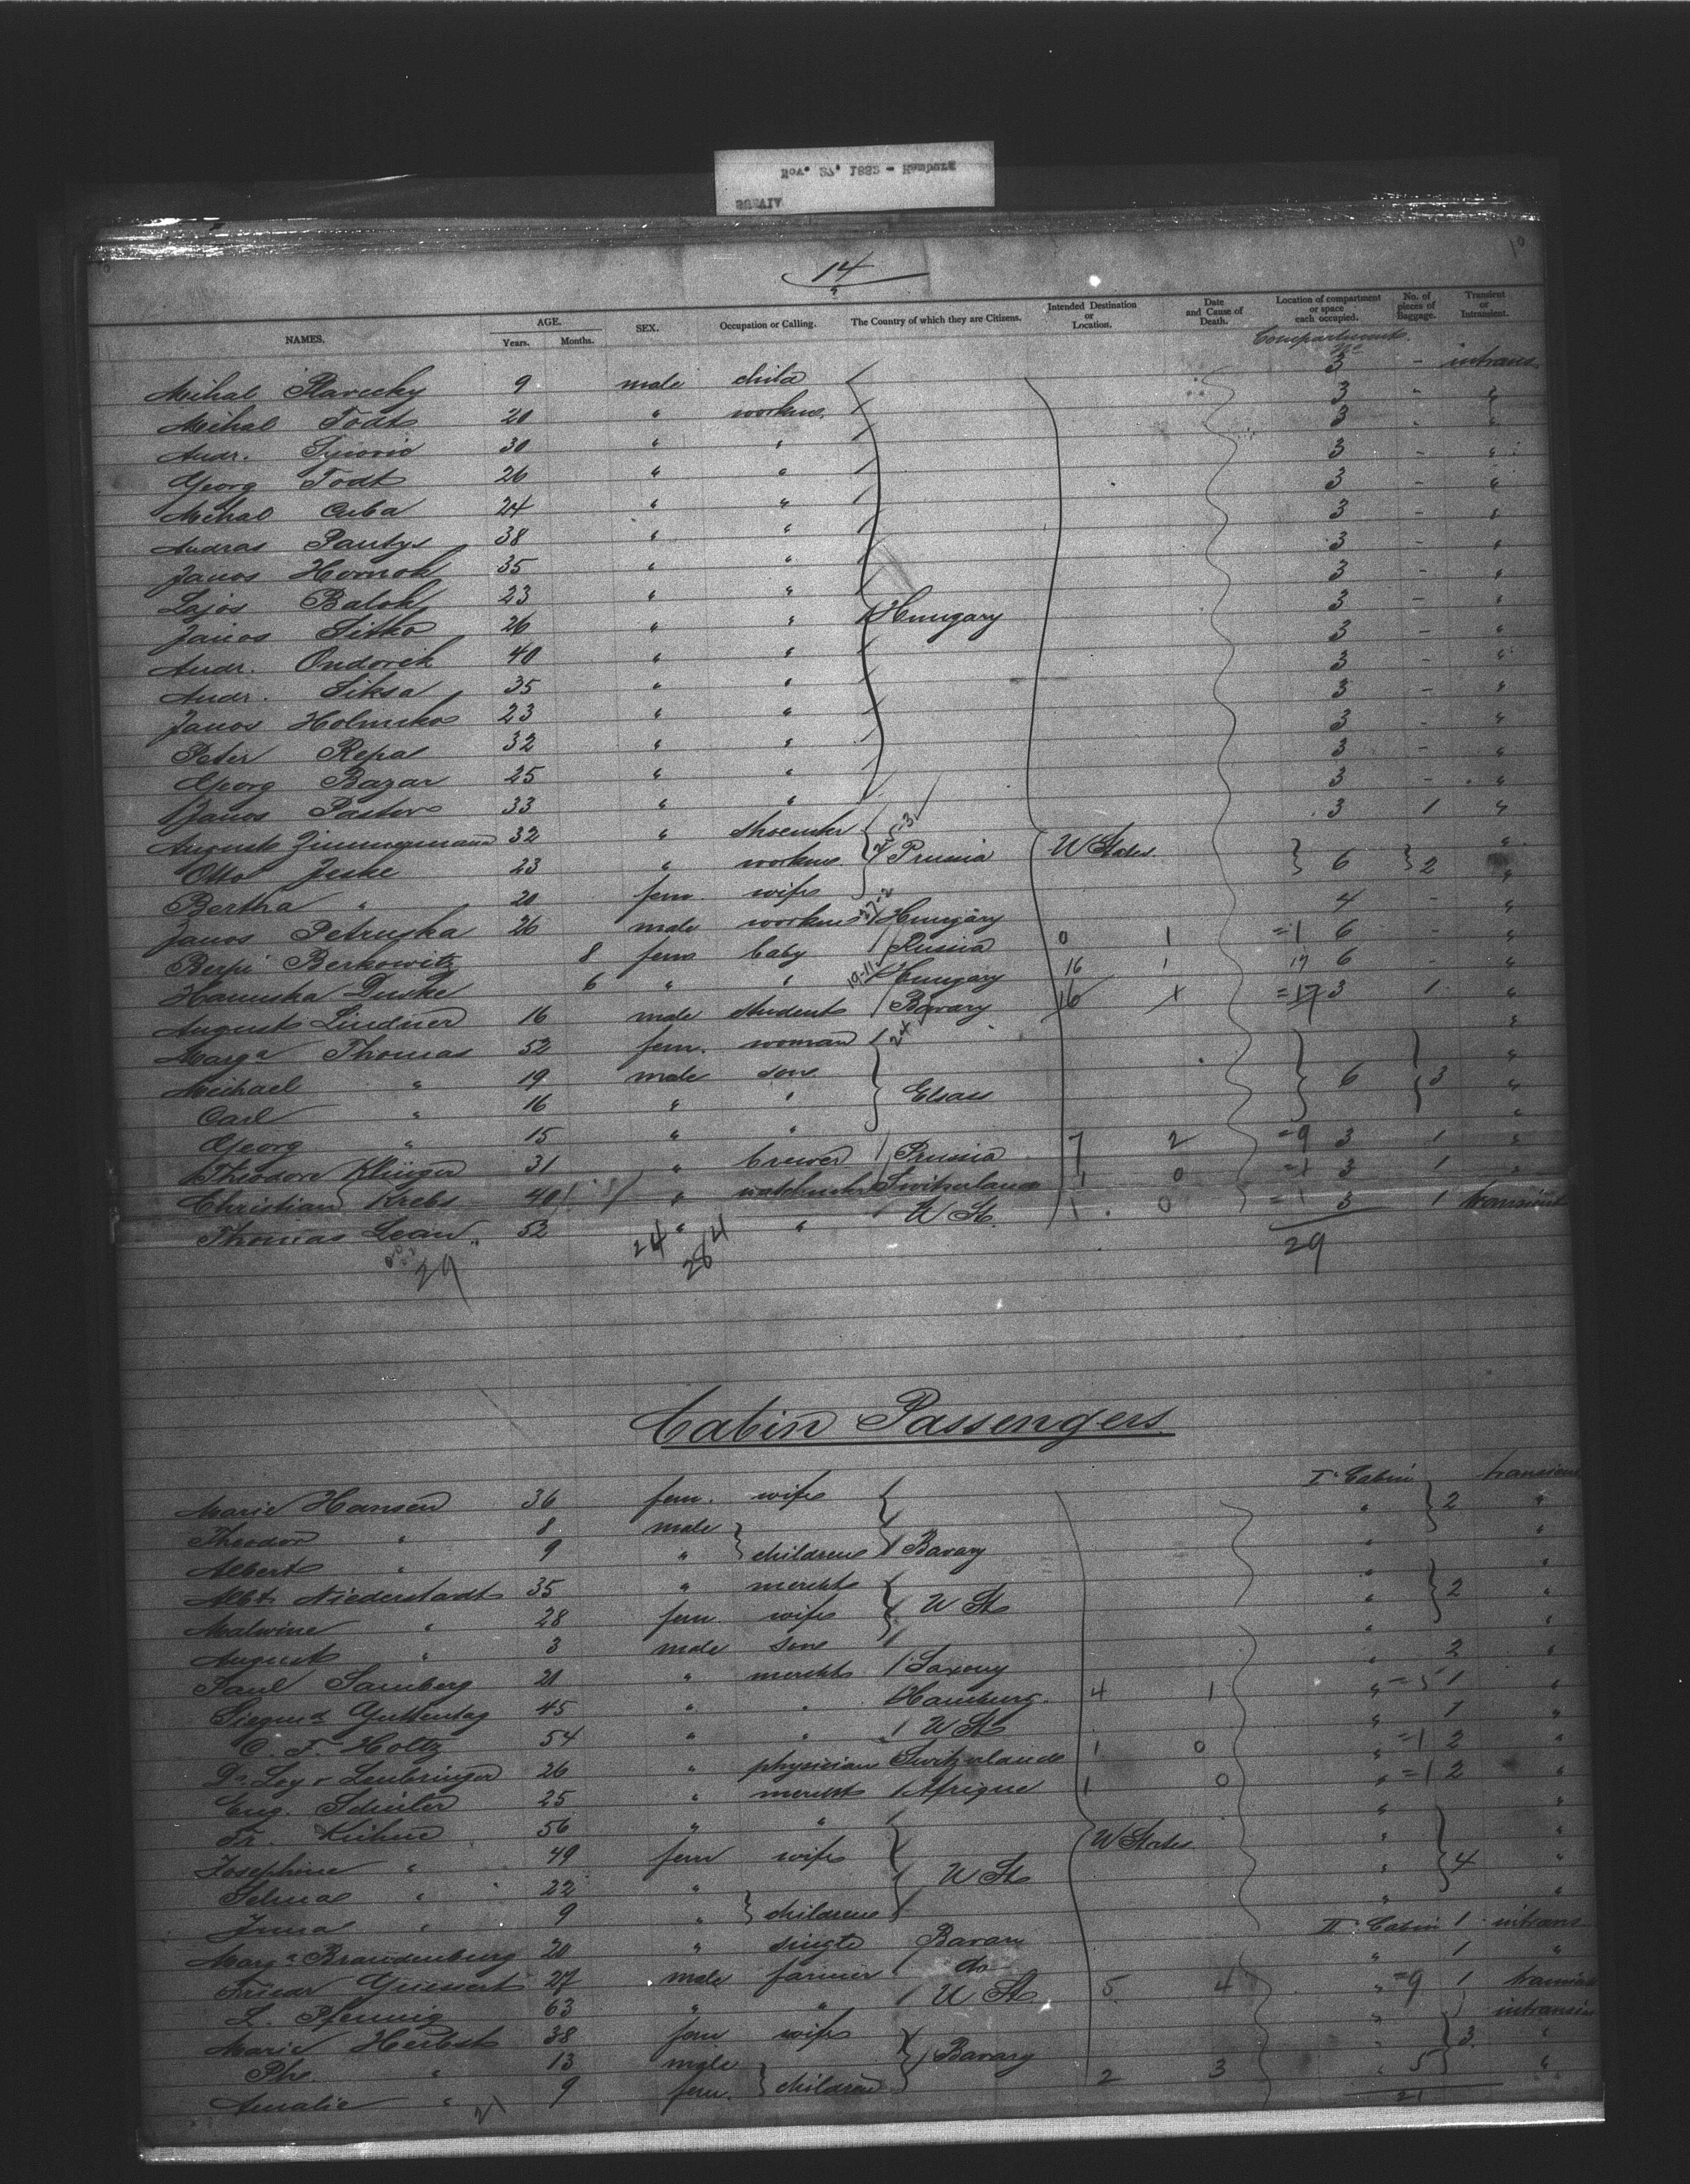 Nov. 27, 1882 - Hamburg
SUEVIA
14
NAMES. AGE. Years. Months. SEX. Occupation or Calling. The Country of which they are Citizens. Intended Destination or Location. Date and Cause of Death. Location of compartment or space each occupied. No. of pieces of Baggage. Transient or Intransient.
Compartment No
Mihal 9 male child 3 - intrans
Mihal Todt 20 " workm. 3 - "
Andr. 30 " " 3 - "
Georg Todt 26 " " 3 - "
Mihal Cuba 24 " " 3 - "
Andras 38 " " 3 - "
Janos Hornok 35 " " 3 - "
Lajos Balok 23 " " 3 - "
Janos Sitko 26 " " Hungary 3 - "
Andr. Ondorek 40 " " 3 - "
Andr. Siksa 35 " " 3 - "
Janos 23 " " 3 - "
Peter Repa 32 " " 3 - "
Georg Bazar 25 " " 3 - "
Janos Pastor 33 " " 3 - "
August Zimmermann 32 " shoemkr 3 1 "
Otto Jeske 23 " workm. Prussia U States 6 2 "
Bertha " 20 fem. wife "
Janos Petruska 26 male workm Hungary 4 - "
Berpi Berkowitz 8 fem baby Russia 0 1 =1 6 - "
Hanuska Duske 6 " " Hungary 16 1 17 6 - "
August Lindner 16 male student Bavary 16 1 =17 3 1 "
Marga Thomas 52 fem. woman "
Michael " 19 male son 6 3 "
Carl " 16 " " Elsass "
Georg " 15 " " "
Theodor Klünger 31 " brewer Prussia 7 2 =9 3 1 "
Christian Krebs 40 " watchmkr Switzerland 1 0 =1 3 1 "
Thomas Lean 52 " " U St. 1 0 =1 3 1 transient
29 24 284 29
Cabin Passengers
Marie Hansen 36 fem. wife I Cabin transient
Theodor " 8 male " 2 "
Albert " 9 " children Bavary " "
Albt. Niederstadt 35 " merchts " "
Malwine " 28 fem. wife U St. " 2 "
August " 3 male son " "
Paul Samberg 21 " merchts Saxony " 2 "
Siegmd. Guttentag 45 " " Hamburg. 4 1 " =5 1 "
C. F. Holtz 54 " " U St. " 1 "
26 " physician Switzerland 1 0 " =1 2 "
Eug. 25 " mercht Afrique 1 0 " =1 2 "
Fr. Kühne 56 " " " "
Josephine " 49 fem wife U States " 4 "
Selma " 22 " U St. " "
" 9 " children " "
Marga Brandenburg 20 " single Bavary II Cabin 1 intrans
Friedr 27 male farmer do " 1 "
L. Pfennig 63 " " U St. 5 4 " =9 1 transient
Marie Herbst 38 fem wife " intransient
Ph. " 13 male Bavary " 3 "
Amalie " 9 fem. children 2 3 " 5 "
21 21